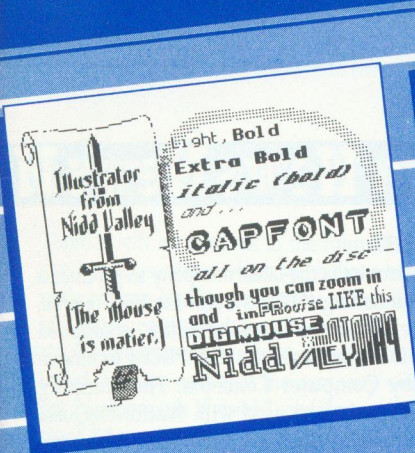 Illustrator
from
Nidd Valley
(The Mouse
is matier.)
Light, Bold
Extra Bold
italic (bold)
and...
CAPFONT
all on the disc
though you can zoom in
and imPRovise LIKE this
DIGIMOUSE
Nidd VALLEY